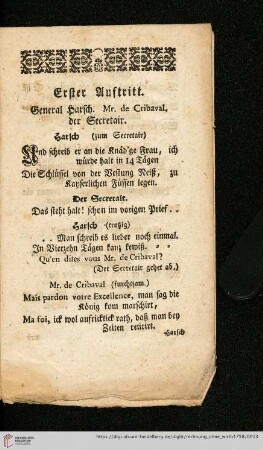 Erster Auftritt.
General Harsch. Mr. de Cribaval,
der Secretair.
Harsch (zum Secretair)
Und schreib er an die Knäd'ge Frau, ich
würde halt in 14 Tägen
Die Schlüssel von der Vestung Neiß, zu
Kayserlichen Füssen legen.
Der Secretair.
Das steht halt! schon im vorigen Prief . .
Harsch (trotzig)
. . Man schreib es lieber noch einmal.
In Vierzehn Tägen kanz kewiß. . .
Qu'en dites vous Mr. de Cribaval?
(Der Secretair gehet ab.)
Mr. de Cribaval (furchtsam.)
Mais pardon votre Excellence, man sag die
König kom marschirt,
Ma foi, ick wol aufricktick rath, daß man bey
Zeiten retirirt.
Harsch